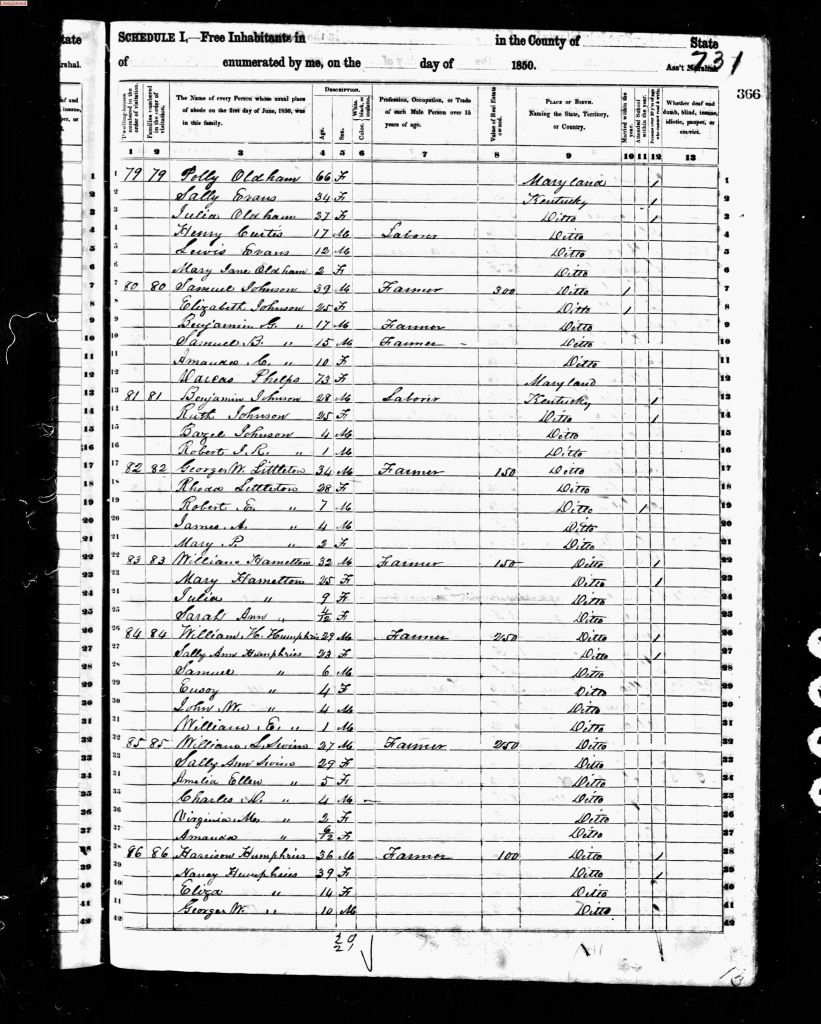 SCHEDULE I.—Free Inhabitants in in the County of State
of enumerated by me, on the day of 1850. Ass't Marshal.
731
366
Dwelling-houses numbered in the order of visitation.
Families numbered in the order of visitation.
The Name of every Person whose usual place of abode on the first day of June, 1850, was in this family.
DESCRIPTION.
Age.
Sex.
Color, White, black, or mulatto.
Profession, Occupation, or Trade of each Male Person over 15 years of age.
Value of Real Estate owned.
PLACE OF BIRTH. Naming the State, Territory, or Country.
Married within the year.
Attended School within the year.
Whether deaf and dumb, blind, insane, idiotic, pauper, or convict.
1 2 3 4 5 6 7 8 9 10 11 12 13
1 79 79 Polly Oldham 66 F Maryland 1 1
2 Sally Evans 34 F Kentucky 1 2
3 Julia Oldham 37 F Ditto 1 3
4 Henry Curtis 17 M Laborer Ditto 4
5 Lewis Evans 12 M Ditto 5
6 Mary Jane Oldham 2 F Ditto 6
7 80 80 Samuel Johnson 39 M Farmer 300 Ditto 1 7
8 Elizabeth Johnson 25 F Ditto 1 8
9 Benjamin G. " 17 M Farmer Ditto 9
10 Samuel B. " 15 M Farmer Ditto 10
11 Amanda C. " 10 F Ditto 11
12 Darcas Phelps 73 F Maryland 12
13 81 81 Benjamin Johnson 28 M Laborer Kentucky 1 13
14 Ruth Johnson 25 F Ditto 1 14
15 Bazel Johnson 4 M Ditto 15
16 Robert J. R. " 1 M Ditto 16
17 82 82 George W. Littleton 34 M Farmer 150 Ditto 17
18 Rhoda Littleton 28 F Ditto 18
19 Robert E. " 7 M Ditto 1 19
20 James A. " 4 M Ditto 20
21 Mary P. " 2 F Ditto 21
22 83 83 William Hamelton 32 M Farmer 150 Ditto 1 22
23 Mary Hamelton 25 F Ditto 1 23
24 Julia " 9 F Ditto 24
25 Sarah Ann " 4/12 F Ditto 25
26 84 84 William H. Humphries 29 M Farmer 250 Ditto 1 26
27 Sally Ann Humphries 23 F Ditto 1 27
28 Samuel " 6 M Ditto 28
29 " 4 F Ditto 29
30 John W. " 4 M Ditto 30
31 William E. " 1 M Ditto 31
32 85 85 William S. 27 M Farmer 250 Ditto 32
33 Sally Ann 29 F Ditto 33
34 Amelia Ellen " 5 F Ditto 34
35 Charles " 4 M Ditto 35
36 Virginia M. " 2 F Ditto 36
37 Amanda " 6/12 F Ditto 37
38 86 86 Harrison Humphries 36 M Farmer 100 Ditto 1 38
39 Nancy Humphries 39 F Ditto 1 39
40 Eliza " 14 F Ditto 40
41 George W. " 10 M Ditto 41
42 42